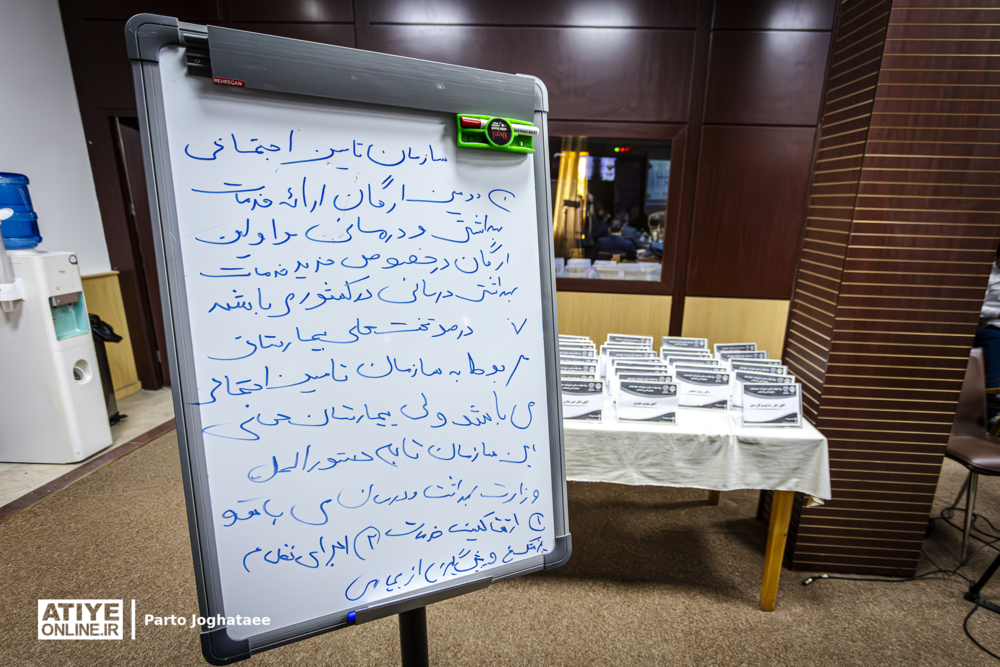 MEHREGAN
سازمان تامین اجتماعی
دومین ارگان ارائه خدمات
بهداشتی و درمانی و اولین
ارگان درخصوص خرید خدمات
بهداشتی درمانی در کشور می باشد
۷ درصد تخت های بیمارستانی
مربوط به سازمان تامین اجتماعی
می باشد ولی بیمارستان های
این سازمان تابع دستورالعمل
وزارت بهداشت و درمان می باشد
۱ ارتقا کیفیت خدمات ۲ اجرای نظام
پیشگیری از بیماری
ATIYE
ONLINE.IR
Parto Joghataee